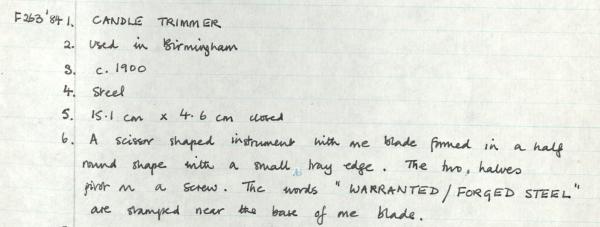 F263'84 1. CANDLE TRIMMER
2. Used in Birmingham
3. c. 1900
4. Steel
5. 15.1 cm x 4.6 cm closed
6. A scissor shaped instrument with one blade formed in a half
round shape with a small tray edge. The two halves
pivot on a screw. The words "WARRANTED/FORGED STEEL"
are stamped near the base of one blade.